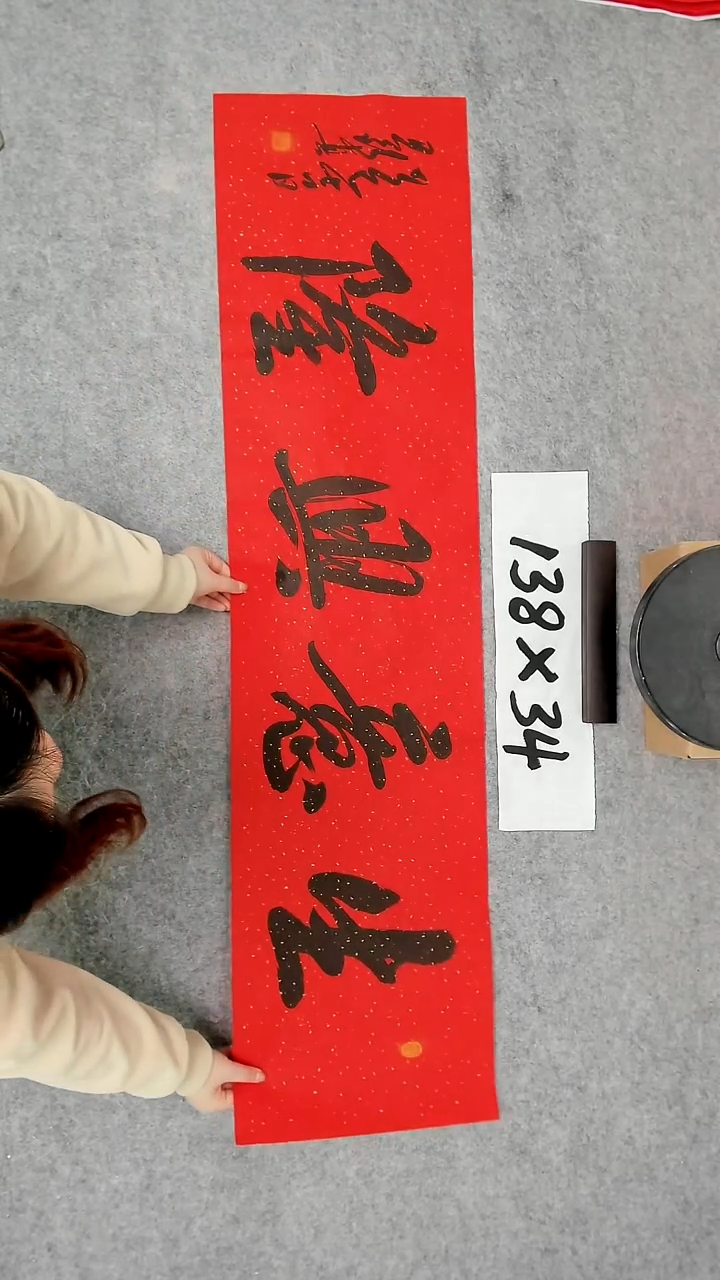 生意興隆
138×34